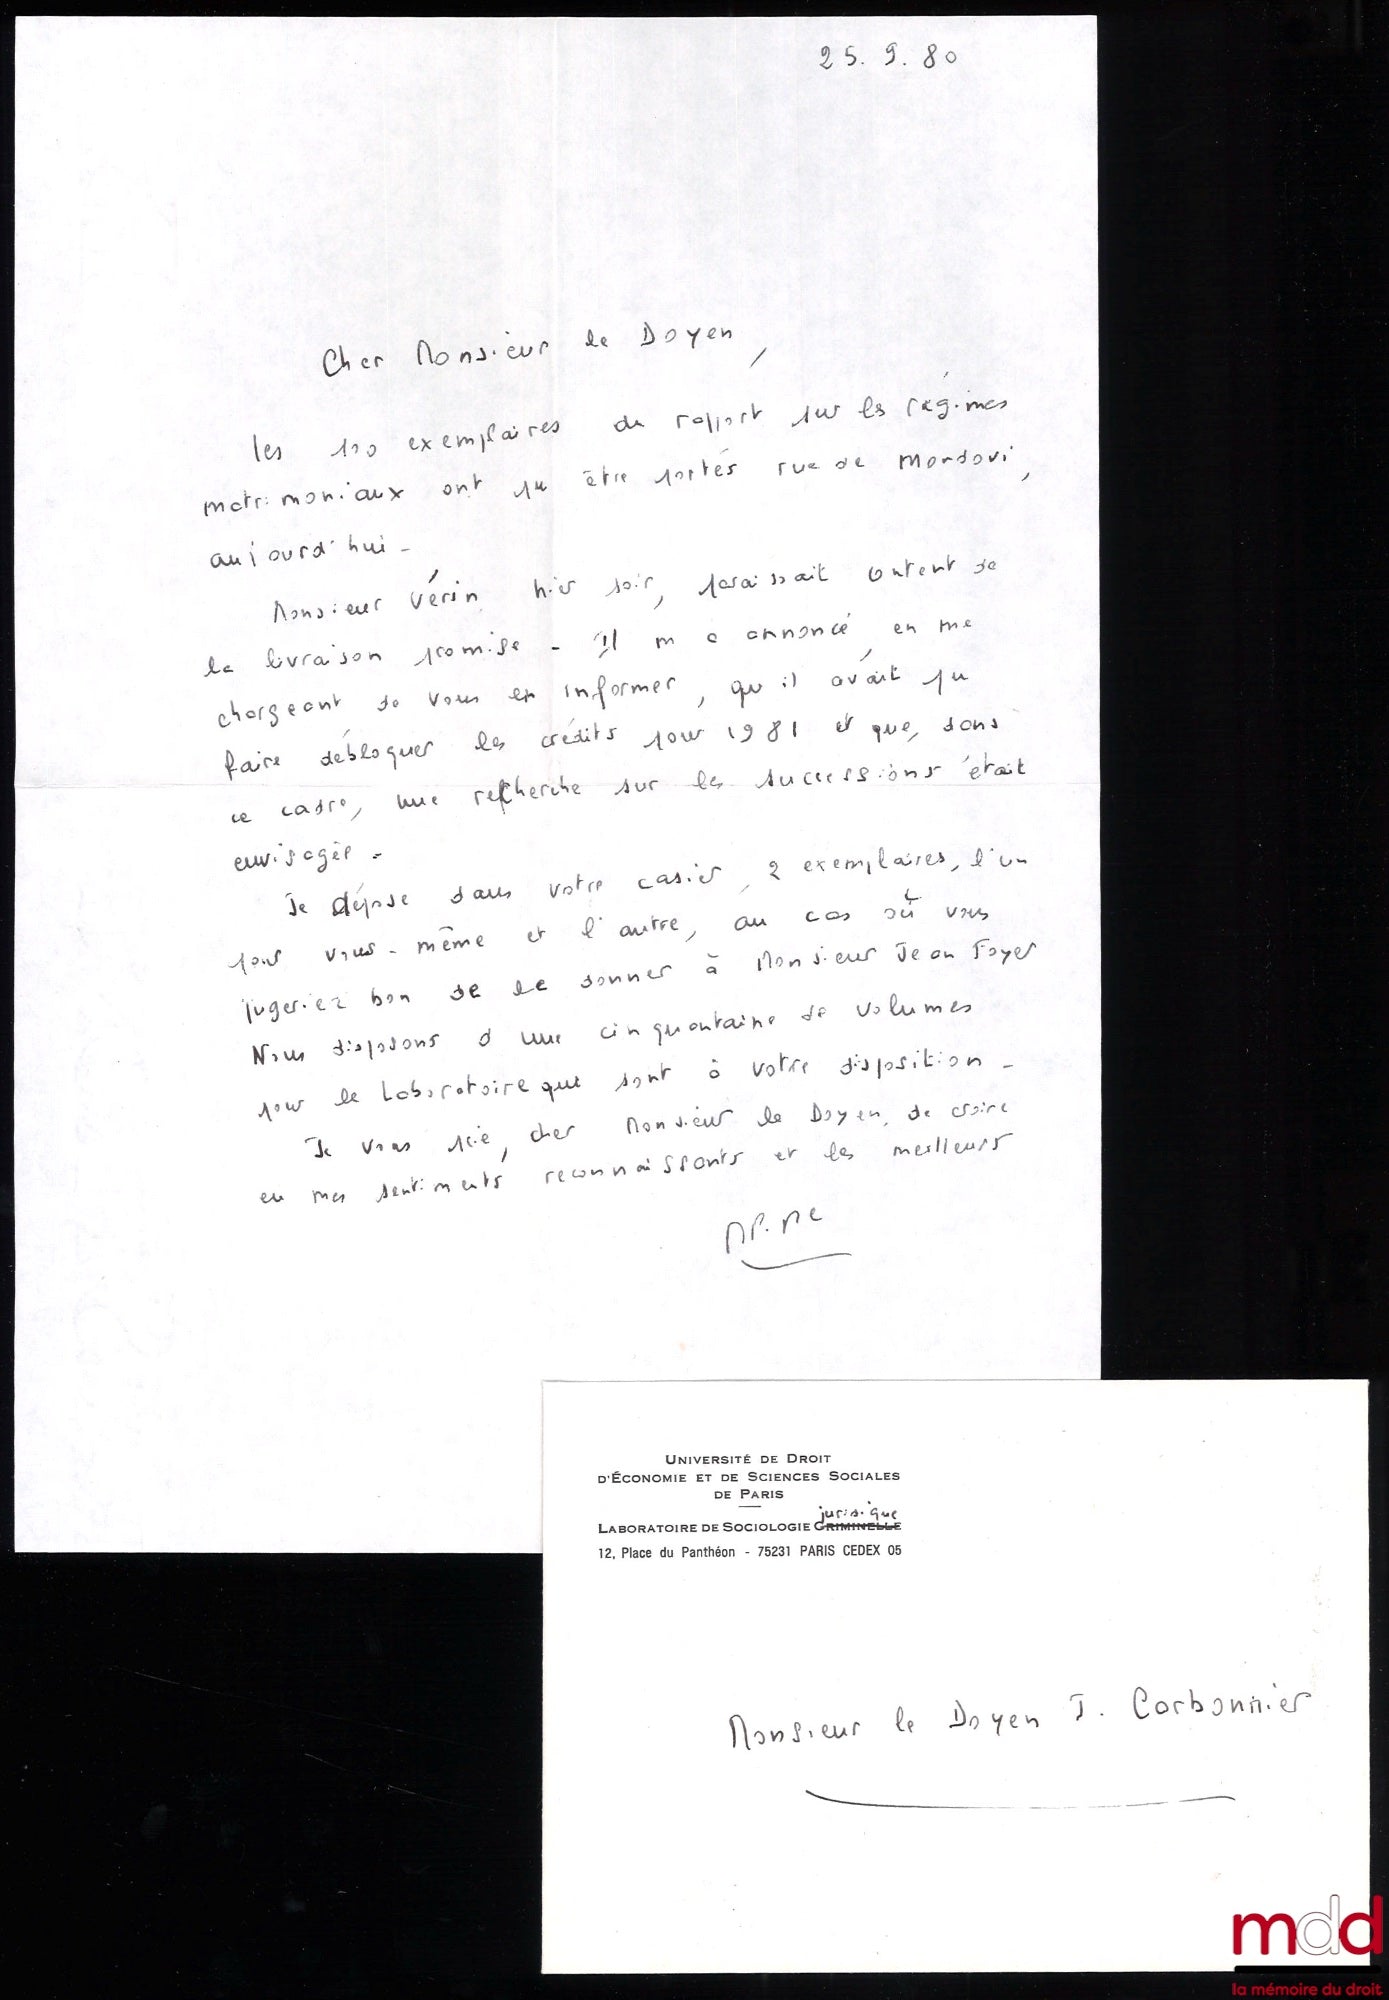 25.9.80
Cher Monsieur le Doyen,
les 100 exemplaires du rapport sur les régimes
matrimoniaux ont pu être portés rue de Mondovi,
aujourd'hui -
Monsieur Vérin, hier soir, paraissait content de
la livraison promise - Il m a annoncé, en me
chargeant de vous en informer, qu il avait pu
faire débloquer les crédits pour 1981 et que, dans
ce cadre, une recherche sur les successions était
envisagée -
Je dépose dans votre casier, 2 exemplaires, l'un
pour vous-même et l'autre, au cas où vous
jugeriez bon de le donner à Monsieur Jean Foyer
Nous disposons d une cinquantaine de volumes
pour le Laboratoire que sont à votre disposition -
Je vous prie, cher Monsieur le Doyen, de croire
en mes sentiments reconnaissants et les meilleurs
UNIVERSITÉ DE DROIT
D'ÉCONOMIE ET DE SCIENCES SOCIALES
DE PARIS
juridique
LABORATOIRE DE SOCIOLOGIE CRIMINELLE
12, Place du Panthéon - 75231 PARIS CEDEX 05
Monsieur le Doyen J. Carbonnier
mdd
la mémoire du droit